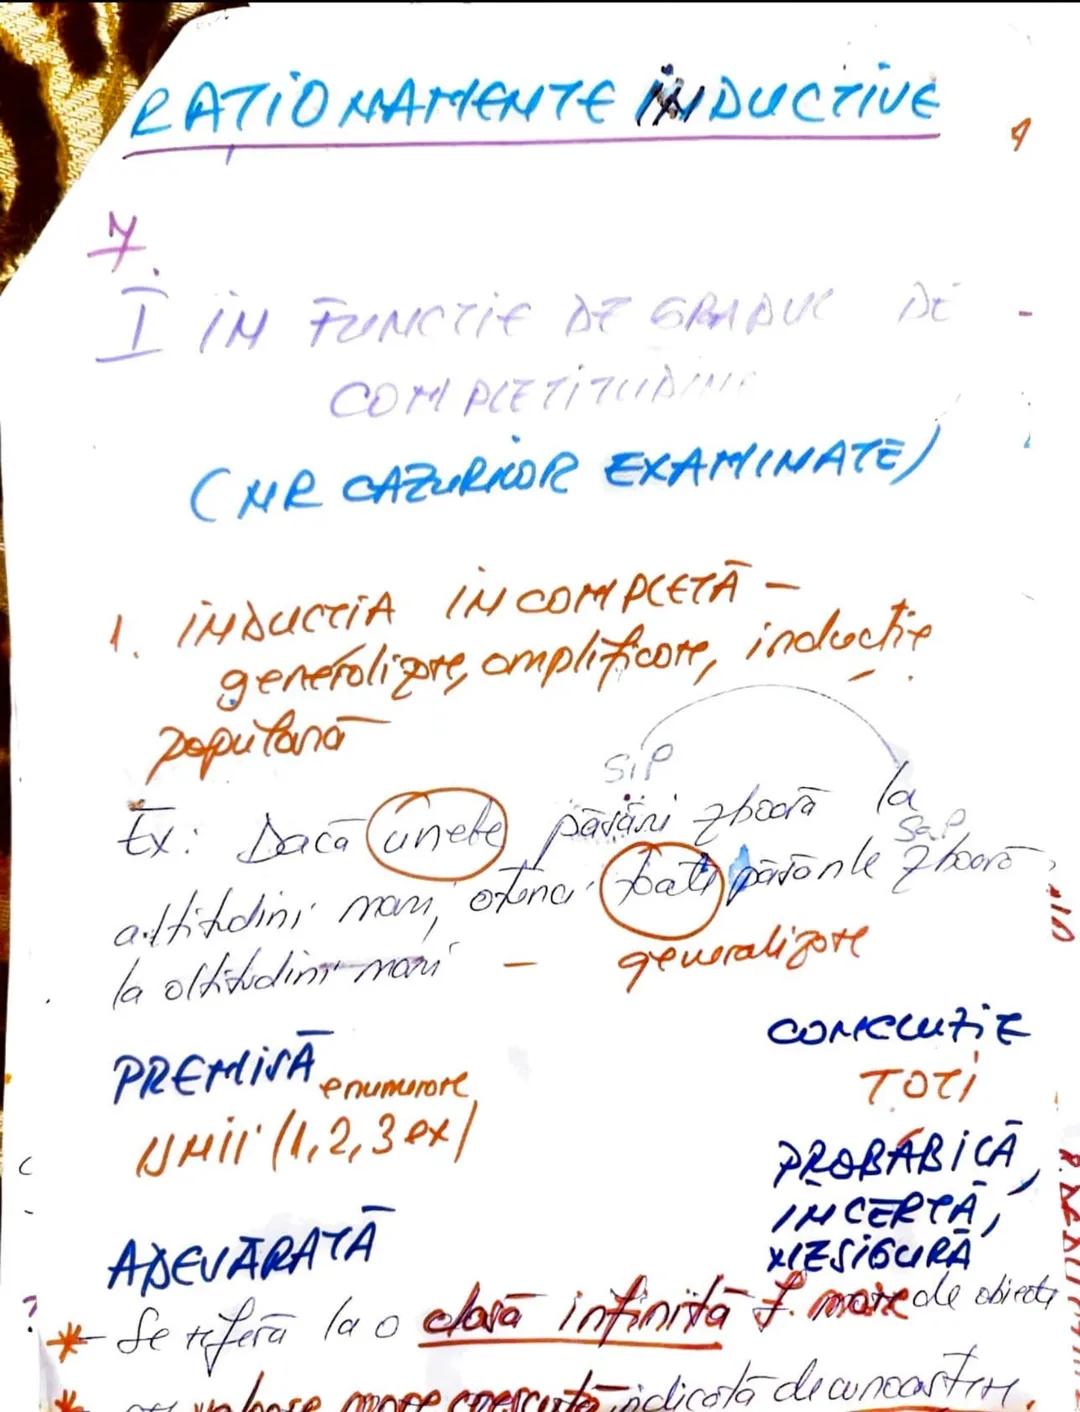 RATIONAMENTE INDUCTIVE
7.
I IN FUNCTIE DE GRADUL DE
COMPLETITUDINE
(NR CAZURILOR EXAMINATE)
1. INDUCTIA INCOMPLETĂ -
generalizare, amplificare, inductie
populară
SiP
Ex: Dacă unele păsări zboară la
SaP
altitudini mari, atunci toate păsările zboară
la altitudini mari - generalizare
PREMISĂ CONCLUZIE
enumerare TOTI
UNII (1,2,3 ex)
PROBABILĂ,
INCERTĂ,
ADEVĂRATĂ NESIGURĂ
* Se referă la o clasă infinită f. mare de obiecte
* valoare mare crescută ridicată de cunoaștere.